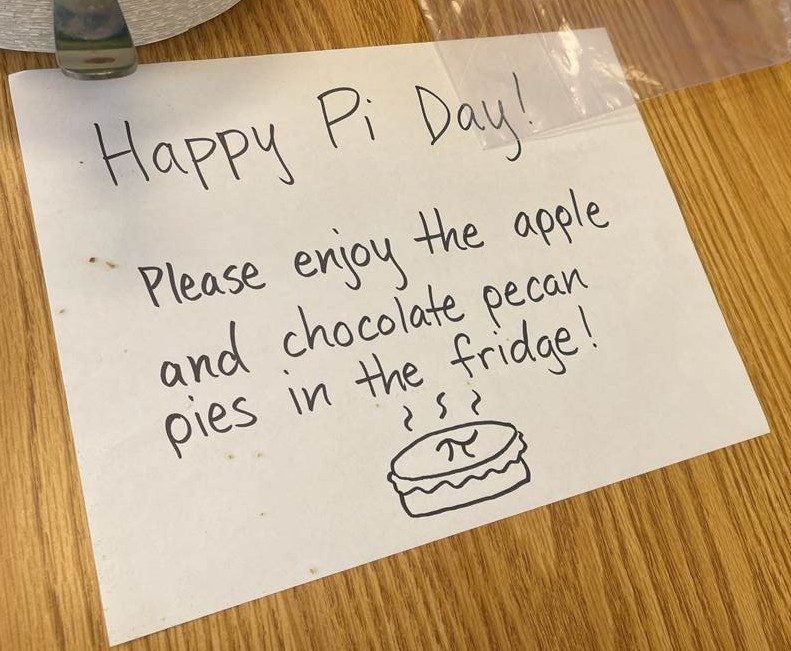 Happy Pi Day!
Please enjoy the apple
and chocolate pecan
pies in the fridge!
π